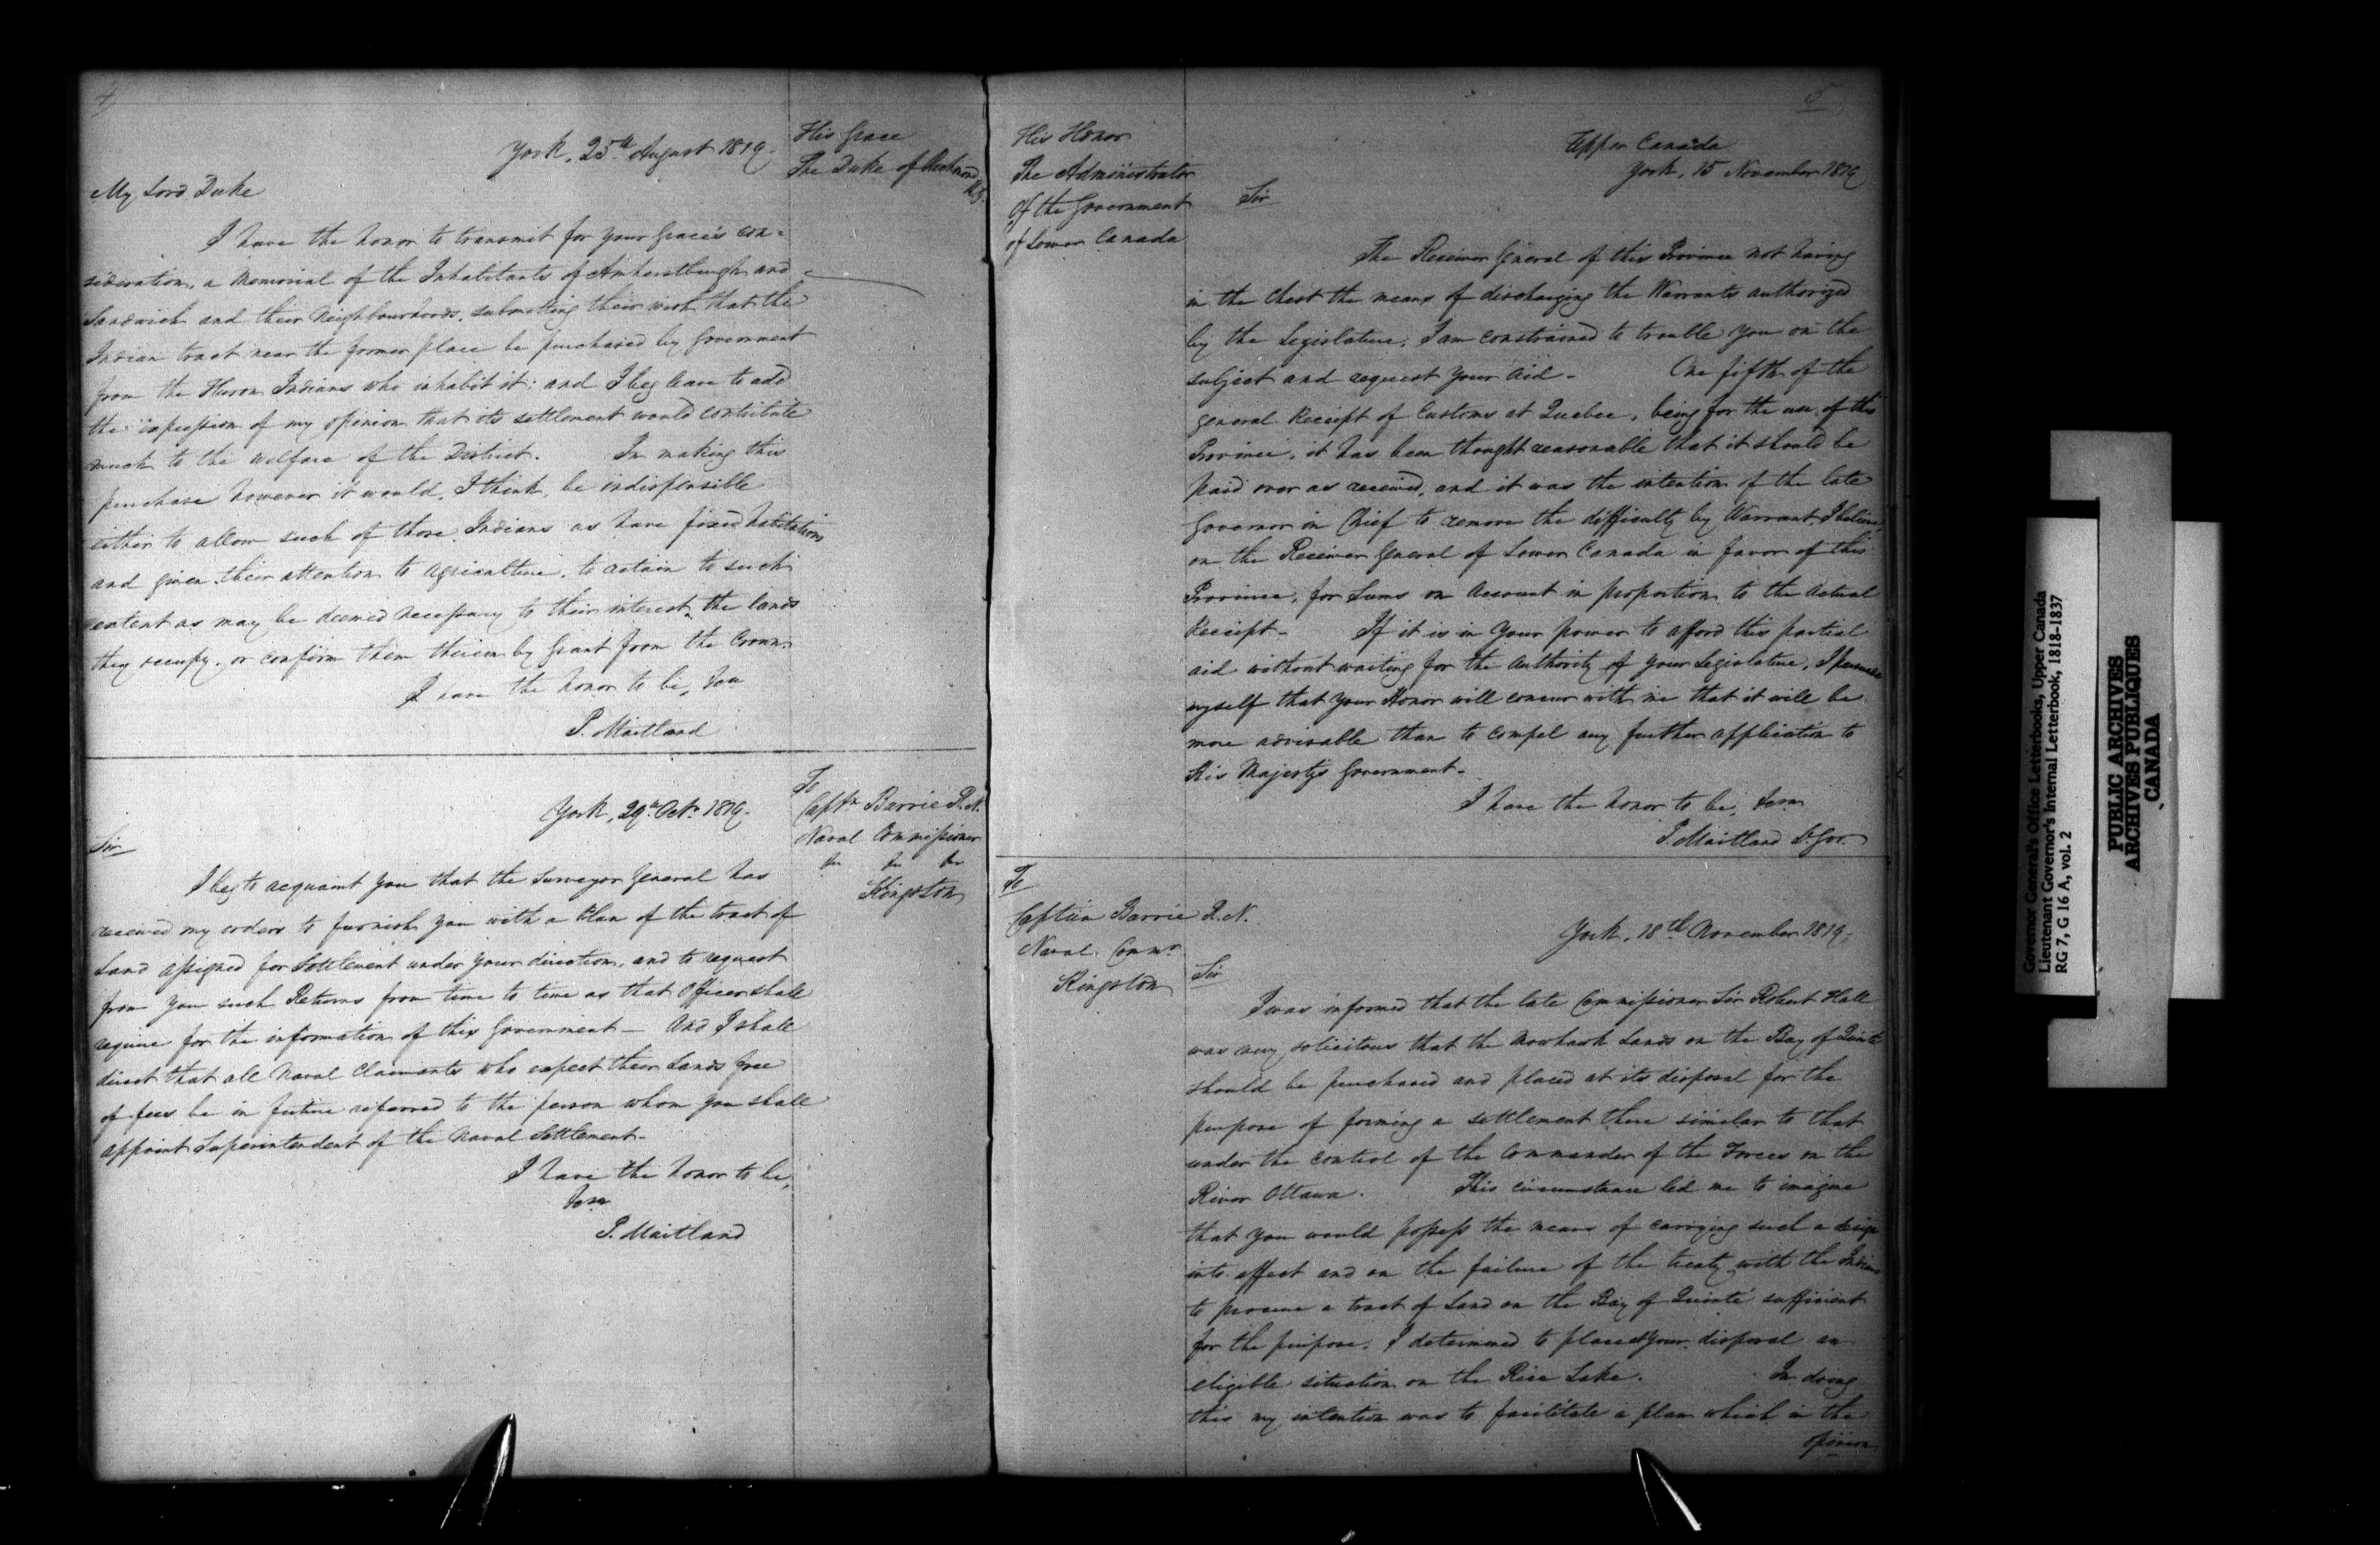 4
York, 25th August 1819.
His Grace
The Duke of Richmond
K.G.
My Lord Duke
I have the honor to transmit for your Grace's con=
sideration, a Memorial of the Inhabitants of Amherstburgh and
Sandwich and their Neighbourhoods, submitting their wish that the
Indian tract near the former place be purchased by Government
from the Huron Indians who inhabit it: and I beg leave to add
the expression of my opinion that its settlement would contribute
much to the welfare of the District. In making this
purchase however it would, I think, be indispensible
either to allow such of those Indians as have fixed habitations
and given their attention to agriculture, to retain to such
extent as may be deemed necessary to their interest, the lands
they occupy, or confirm them therein by Grant from the Crown.
I have the honor to be,
P. Maitland
York, 29th Octr 1819.
To
Captn Barrie R.N.
Naval Commissioner
Kingston
Sir
I beg to acquaint you that the Surveyor General has
received my orders to furnish you with a Plan of the tract of
Land assigned for Settlement under your direction, and to request
from you such Returns from time to time as that Officer shall
require for the information of this Government - And I shall
direct that all Naval Claimants who expect their Lands free
of fees be in future referred to the person whom you shall
appoint Superintendent of the Naval Settlement-
I have the honor to be,
P. Maitland
5
His Honor
The Administrator
Of the Government
of Lower Canada
Upper Canada
York, 15 November 1819
Sir
The Receiver General of this Province not having
in the Chest the means of discharging the Warrants authorized
by the Legislature, I am constrained to trouble you on the
subject and request your aid - One fifth of the
general Receipt of Customs at Quebec, being for the use of this
Province, it has been thought reasonable that it should be
paid over as received, and it was the intention of the late
Governor in Chief to remove the difficulty by Warrant, I believe,
on the Receiver General of Lower Canada in favor of this
Province, for Sums on Account in proportion to the Actual
Receipt - If it is in Your power to afford this partial
aid without waiting for the Authority of your Legislature, I persuade
myself that your Honor will concur with me that it will be
more advisable than to compel any further application to
His Majesty's Government-
I have the honor to be,
P. Maitland Lt. Gov.
To
Captain Barrie R.N.
Naval Commr
Kingston
York, 18th November 1819.
Sir
I was informed that the late Commissioner Sir Robert Hall
was very solicitous that the Mowhawk Lands on the Bay of Quinté
should be purchased and placed at its disposal for the
purpose of forming a settlement there similar to that
under the control of the Commander of the Forces on the
River Ottawa. This circumstance led me to imagine
that you would possess the means of carrying such a design
into effect and on the failure of the treaty with the Indians
to procure a tract of Land on the Bay of Quinté sufficient
for the purpose, I determined to place at your disposal an
eligible situation on the Rice Lake. In doing
this my intention was to facilitate a plan which in the
opinion
Governor General's Office Letterbooks, Upper Canada
Lieutenant Governor's Internal Letterbook, 1818-1837
RG 7, G 16 A, vol. 2
PUBLIC ARCHIVES
ARCHIVES PUBLIQUES
CANADA